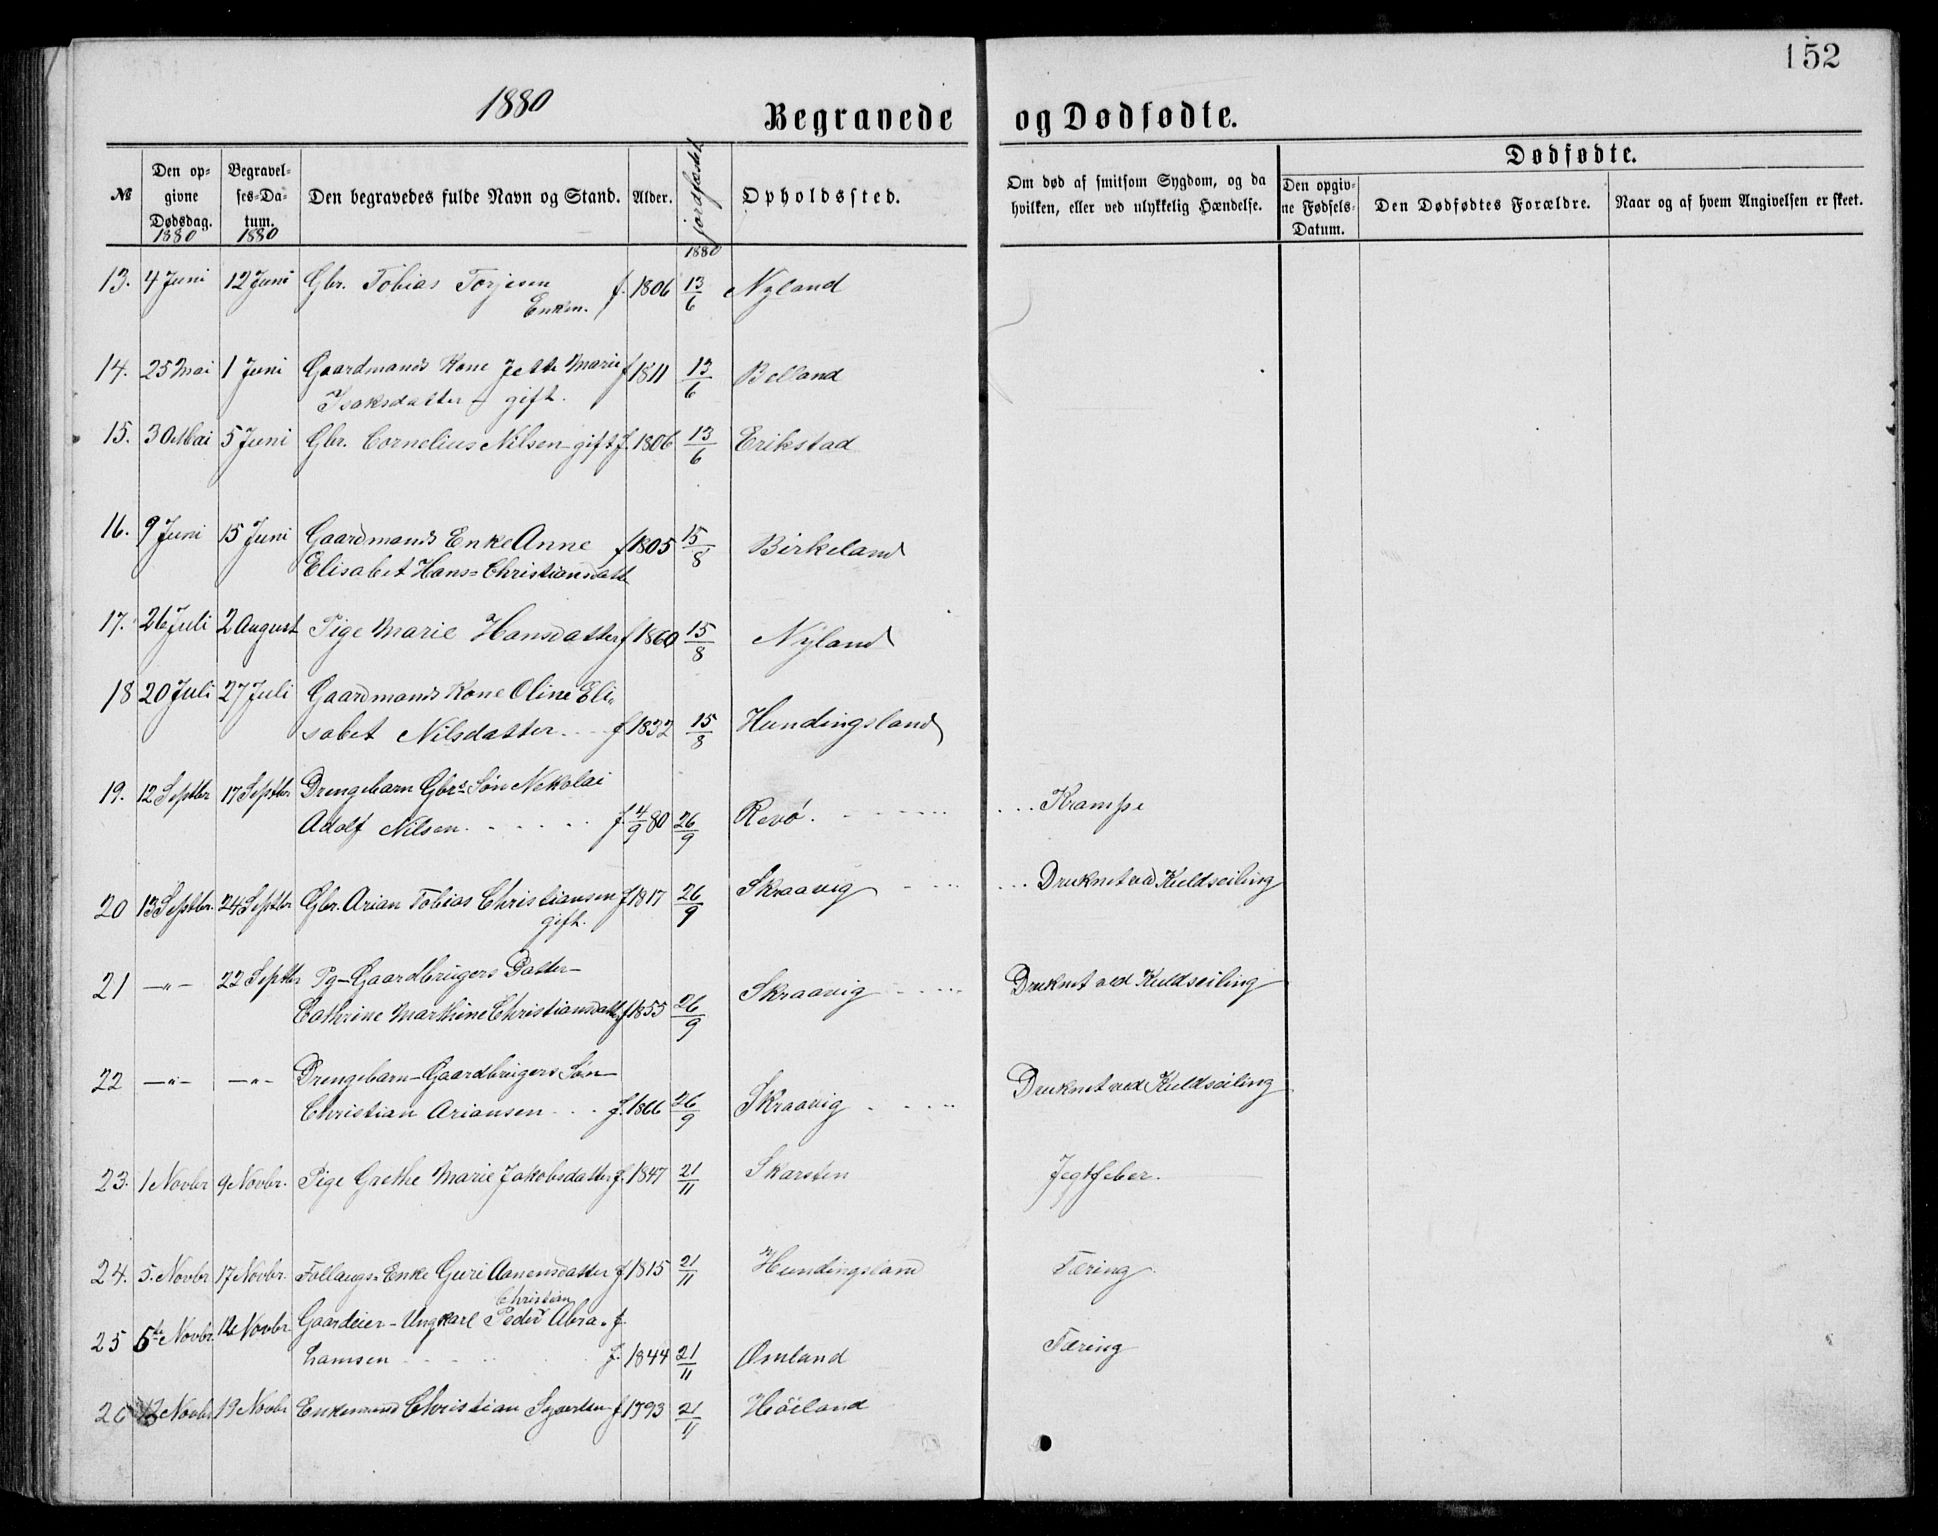 152
1880
Begravede og Dødfødte.
№ Den opgivne Dødsdag. 1880 Begravelses-Datum. 1880 Den begravedes fulde Navn og Stand. Alder. jordfæstet 1880 Opholdssted. Om død af smitsom Sygdom, og da hvilken, eller ved ulykkelig Hændelse. Dødfødte. Den opgivne Fødsels-Datum. Den Dødfødtes Forældre. Naar og af hvem Angivelsen er skeet.
13. 4 Juni 12 Juni Gbr. Tobias Torjesen f. 1806 13/6 Nyland
Enkem.
14. 25 Mai 1 Juni Gaardmands Kone Jette Marie f 1811 13/6 Belland
Isaksdatter – gift.
15. 30 Mai 5 Juni Gbr. Cornelius Nilsen – gift f. 1806 13/6 Erikstad
16. 9 Juni 15 Juni Gaardmands Enke Anne f 1805 15/8 Birkeland
Elisabet Hans=Christiansdatt
17. 26 Juli 2 August Pige Marie Hansdatter f 1860 15/8 Nyland
18 20 Juli 27 Juli Gaardmands Kone Oline Eli-
sabet Nilsdatter . . . f 1832 15/8 Hundingsland
19. 12 Septbr 17 Septbr Drengebarn Gbrs Søn Nikolai
Adolf Nilsen . . . . . f. 4/9 80 26/9 Revø . . . . . . . . Krampe
20 13 Septbr. 24 Septbr Gbr. Arian Tobias Christiansen f 1817 26/9 Skraavig . . . . . . Druknet ved Kuldseiling
gift.
21 –"– 22 Septbr Pg – Gaardbrugers Datter –
Cathrine Marthine Christiansdatt f 1855 26/9 Skraavig . . . . Druknet ved Kuldseiling
22 –"– –"– Drengebarn – Gaardbrugers Søn –
Christian Ariansen . . . f. 1866 26/9 Skraavig . . . . Druknet ved Kuldseiling
23. 1 Novbr 9 Novbr. Pige Grethe Marie Jakobsdatter f. 1847 21/11 Skarsten Jegtfeber.
24. 5. Novbr 17 Novbr. Follaugs-Enke Guri Aanensdatter f 1815 21/11 Hundingsland Tæring.
Christian
25 5te Novbr. 12 Novbr Gaardeier – Ungkarl Peder Abra- f.
hamsen . . . . f. 1844 21/11 Omland Tæring
26 12 Novbr 19 Novbr Enkemand Christian f 1793 21/11 Høiland